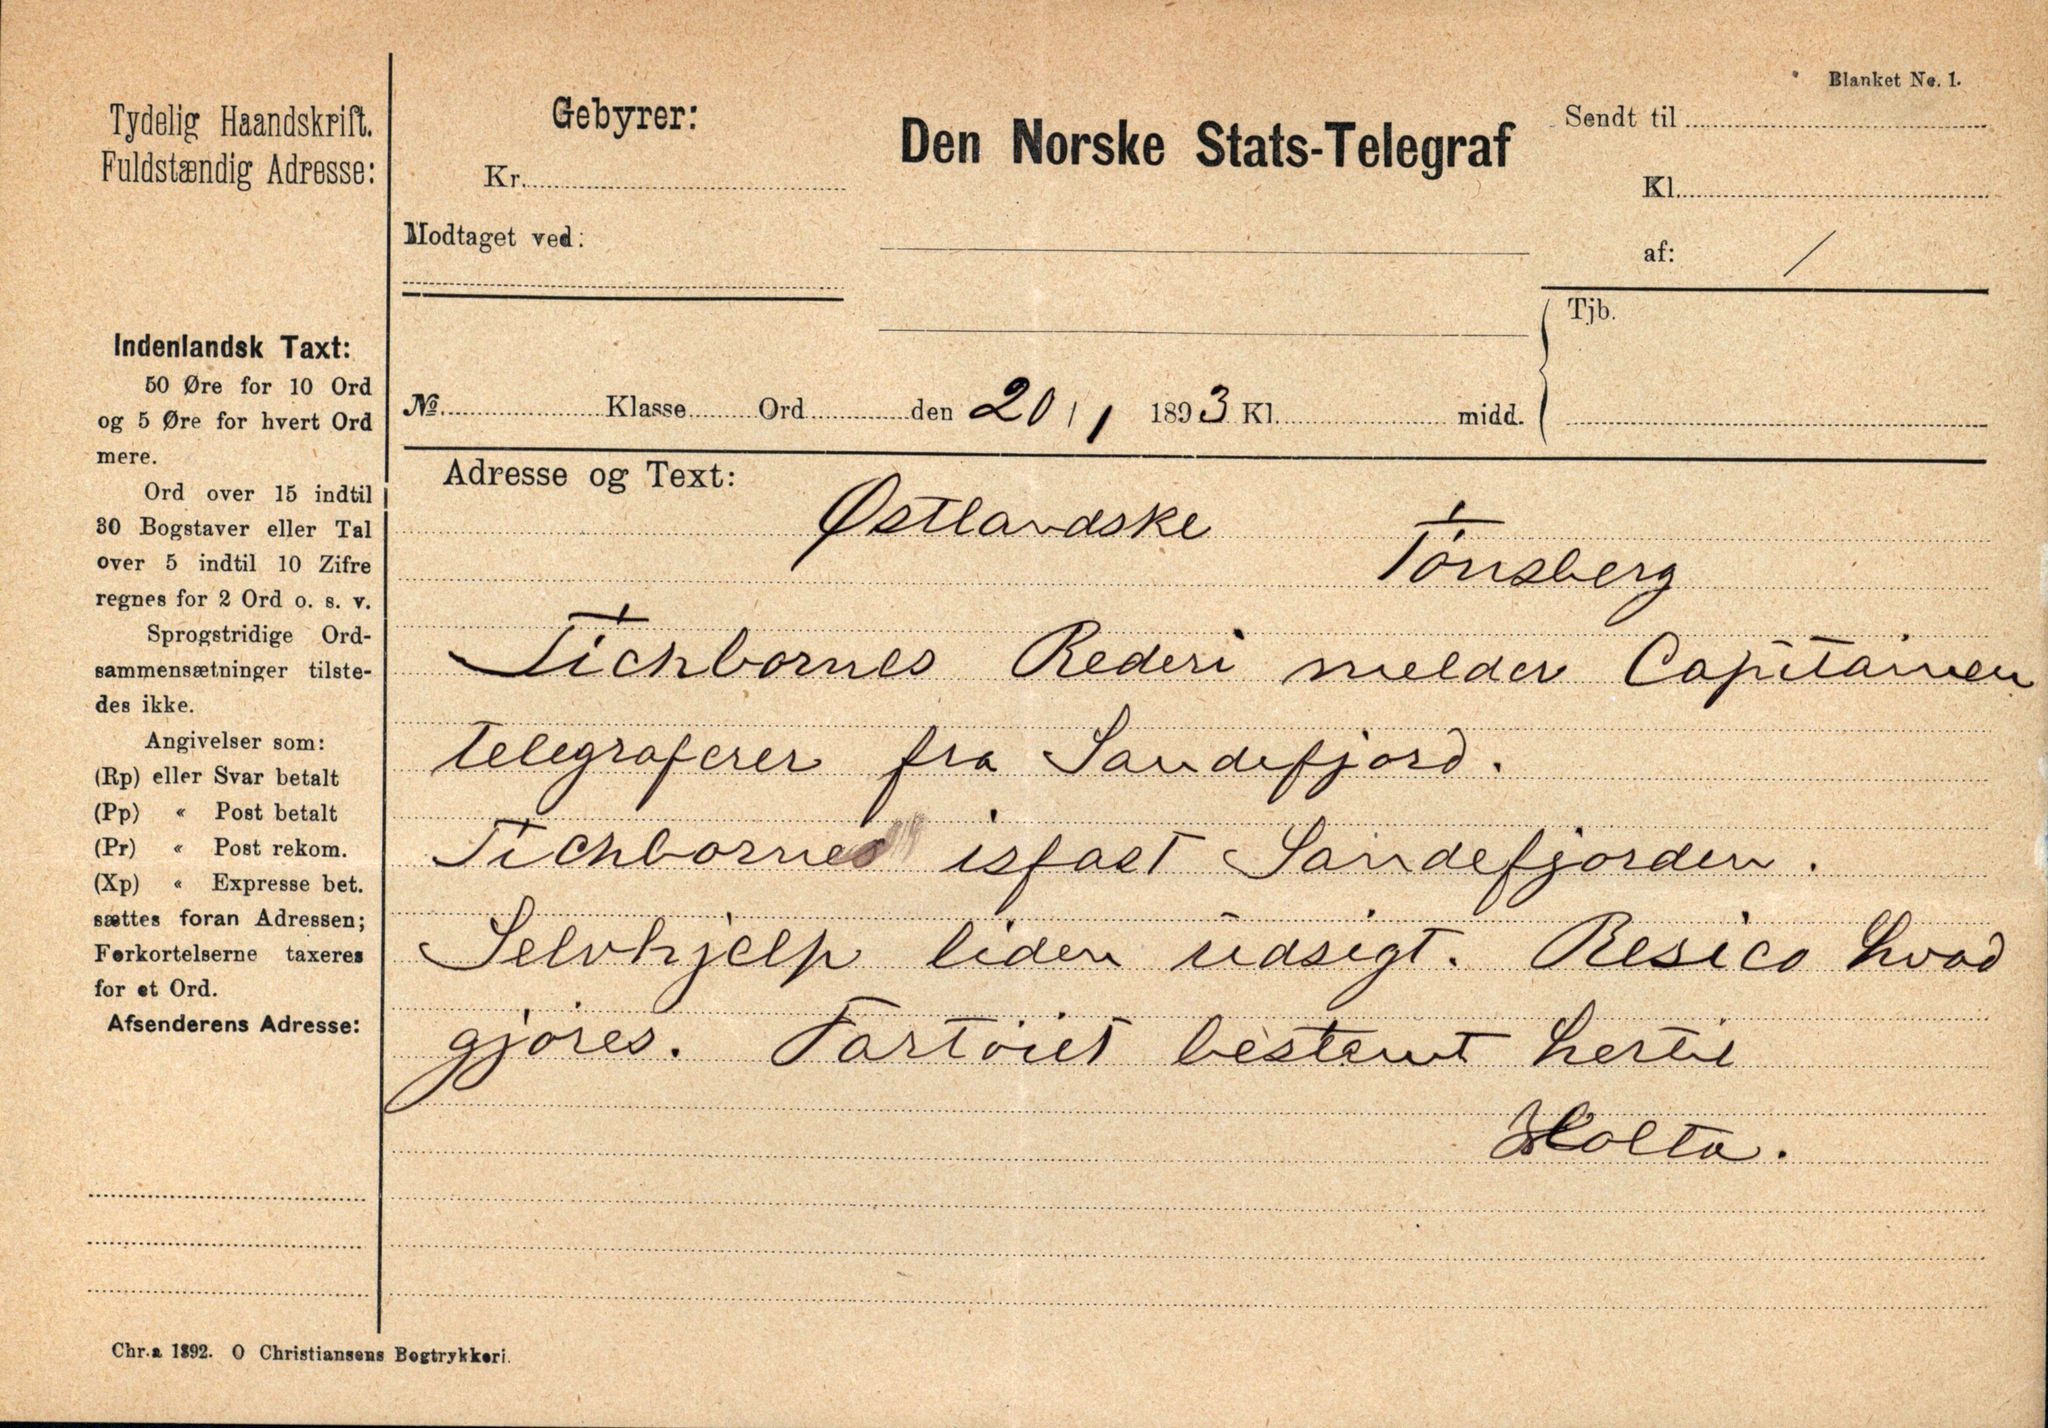 Blanket No. 1.
Tydelig Haandskrift.
Fuldstændig Adresse:
Gebyrer:
Kr.
Modtaget ved:
Den Norske Stats-Telegraf
Sendt til
Kl.
af: /
Tjb.
No. Klasse Ord den 20/1 1893 Kl. midd.
Indenlandsk Taxt:
50 Øre for 10 Ord
og 5 Øre for hvert Ord
mere.
Ord over 15 indtil
30 Bogstaver eller Tal
over 5 indtil 10 Zifre
regnes for 2 Ord o. s. v.
Sprogstridige Ord-
sammensætninger tilste-
des ikke.
Angivelser som:
(Rp) eller Svar betalt
(Pp) « Post betalt
(Pr) « Post rekom.
(Xp) « Expresse bet.
sættes foran Adressen;
Forkortelserne taxeres
for et Ord.
Afsenderens Adresse:
Adresse og Text:
Østlandske
Tönsberg
Tichbornes Rederi melder Capitainen
telegraferer fra Sandefjord.
Tichbornes isfast Sandefjorden.
Selvhjelp liden udsigt. Resico hvad
gjöres. Fartöiet bestemt hertil
Holta.
Chr.a 1892. O Christiansens Bogtrykkeri.